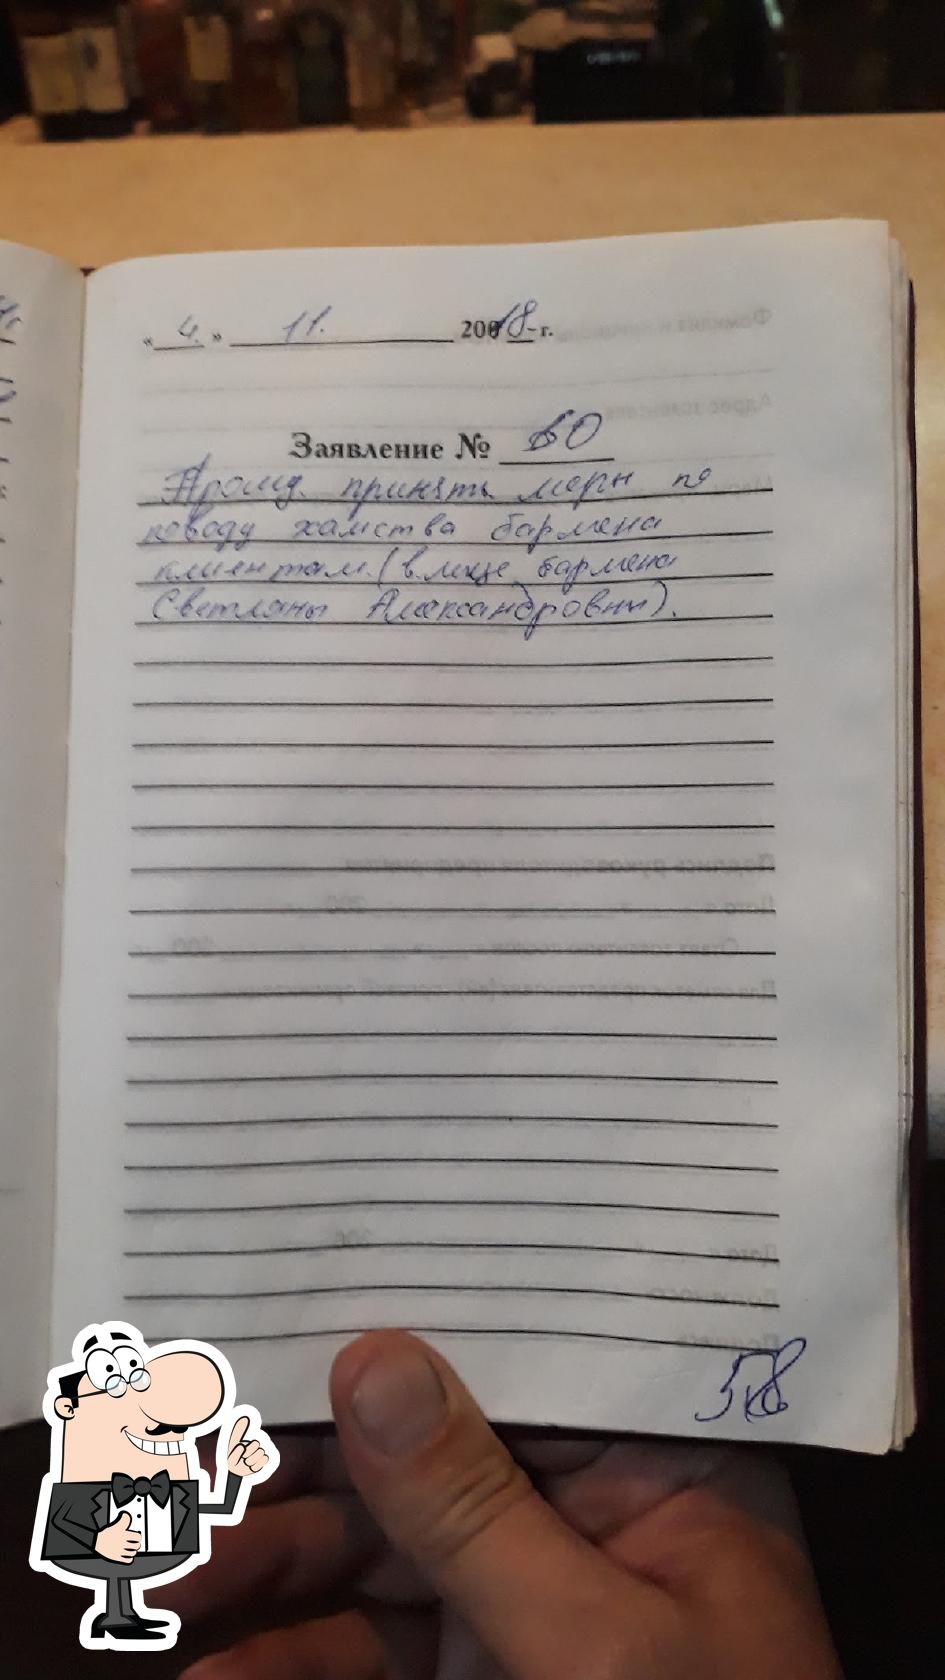 « 4. » 11. 20018 - г.
Заявление № 60
Прошу принять меры по
поводу хамства бармена
клиентам. (в лице бармена
Светланы Александровны).
58